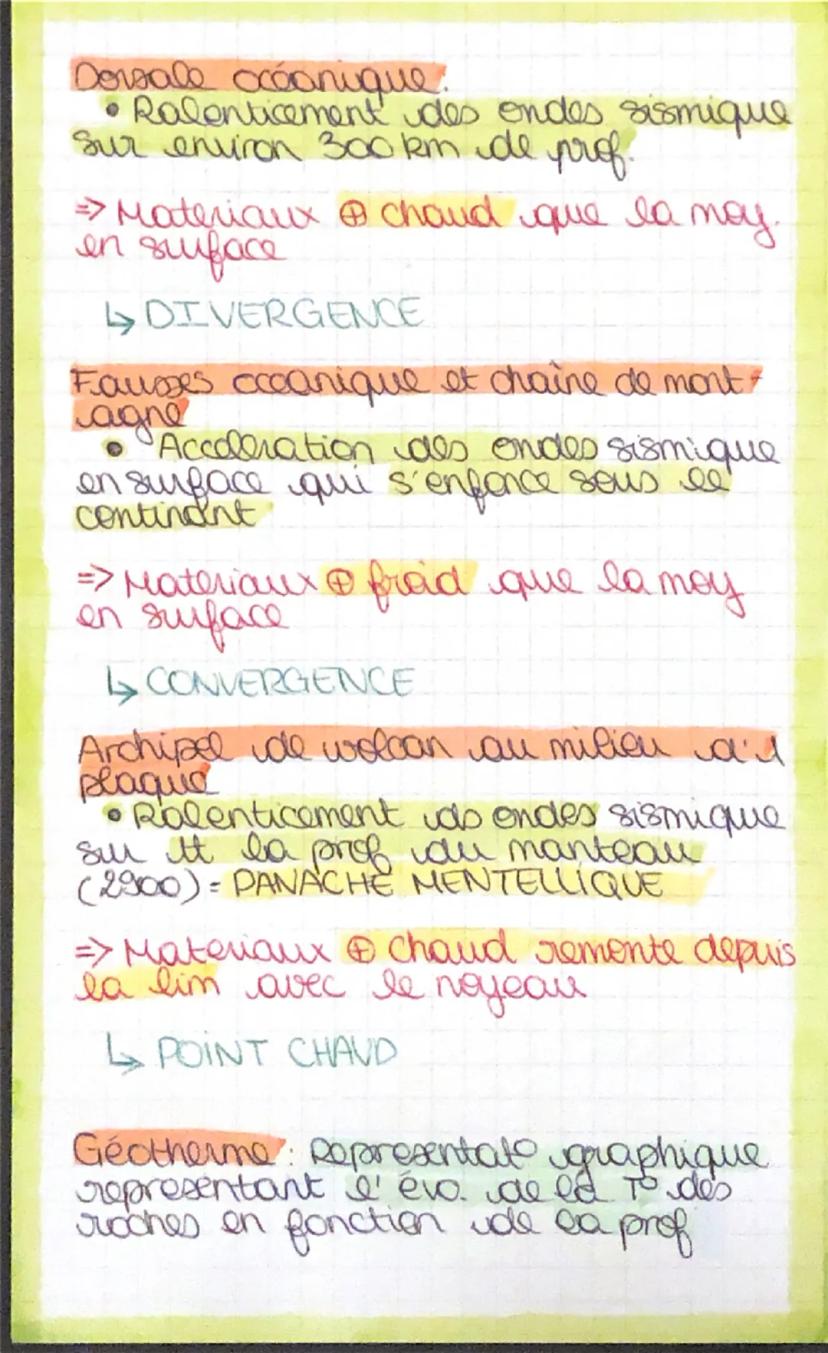 Dorsale océanique.
• Ralenticement des ondes sismique
sur environ 300 km de prof.
=> Materiaux ⊕ chaud que la moy.
en surface
↳ DIVERGENCE
Fausses océanique et chaîne de mont-
agne
• Acceleration des ondes sismique
en surface qui s'enfonce sous le
continent
=> Materiaux ⊕ froid que la moy
en surface
↳ CONVERGENCE
Archipel de volcan au milieu d'1
plaque
• Ralenticement ds ondes sismique
sur tt la prof du manteau
(2900) = PANACHE MENTELLIQUE
=> Materiaux ⊕ chaud remonte depuis
la lim avec le noyeau
↳ POINT CHAUD
Géotherme : Representat° graphique
representant l'évo. de la T° des
roches en fonction de la prof